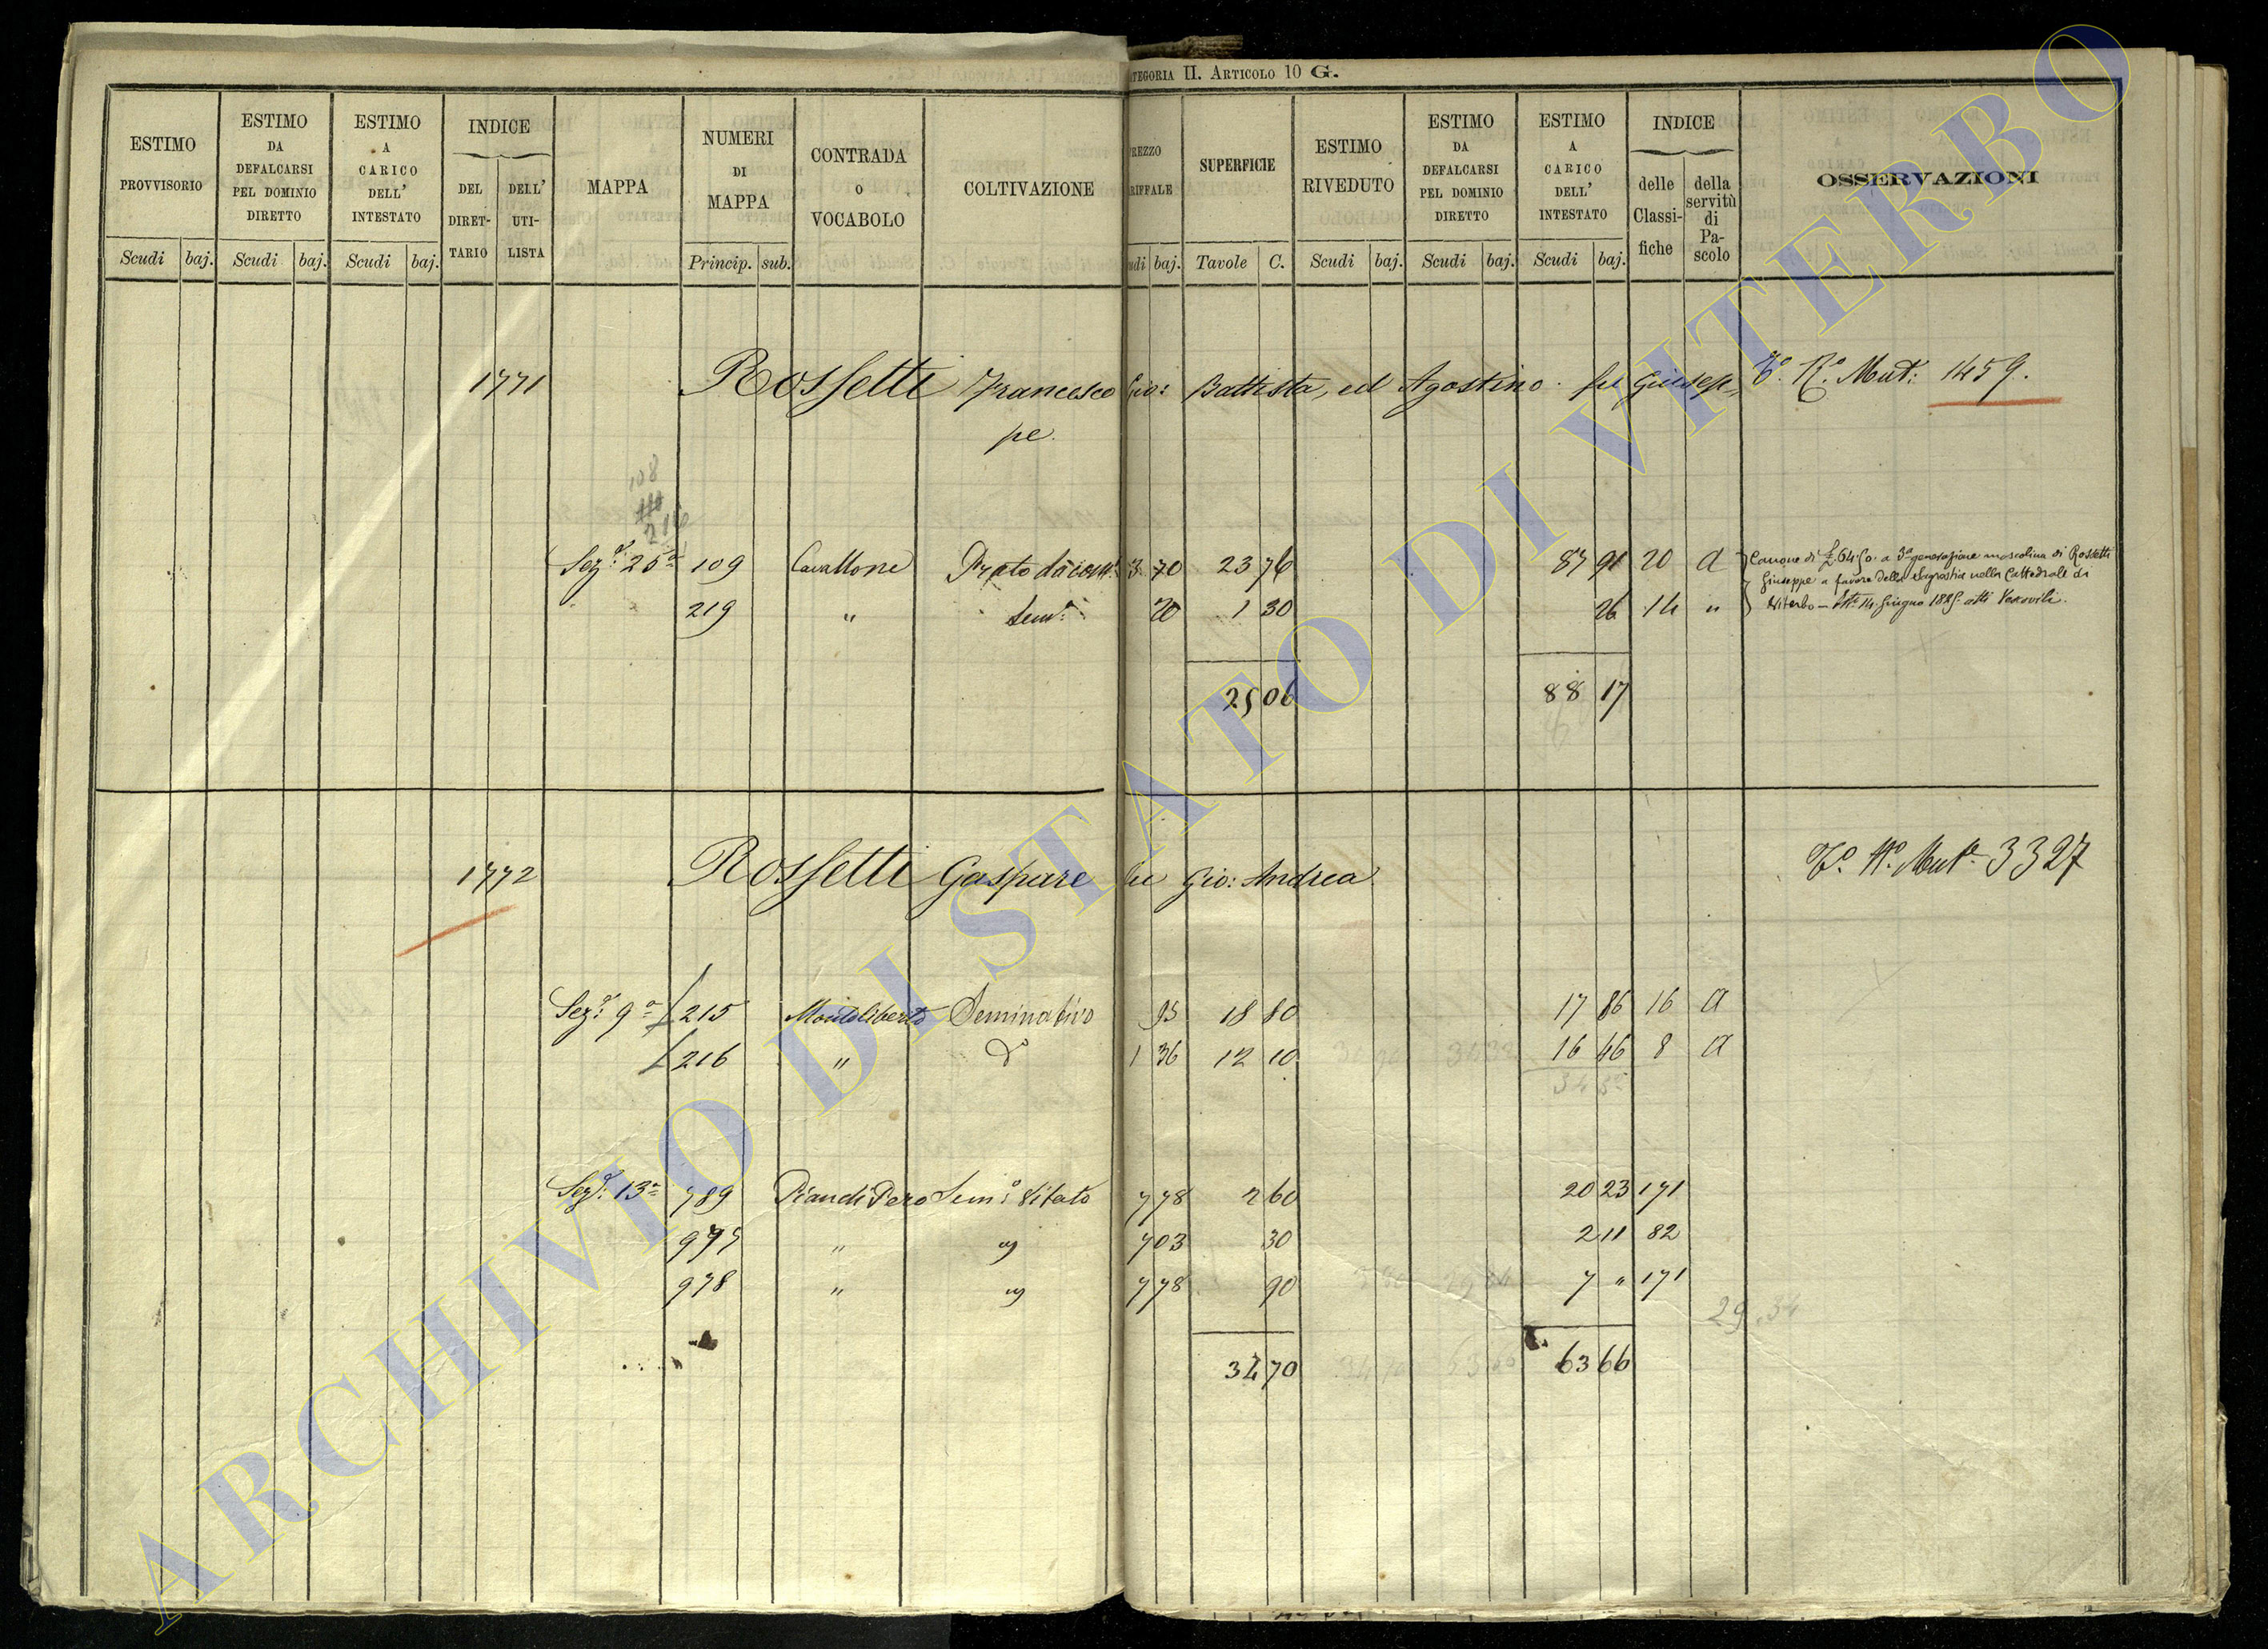 CATEGORIA II. ARTICOLO 10 G.
ESTIMO PROVVISORIO
ESTIMO DA DEFALCARSI PEL DOMINIO DIRETTO
ESTIMO A CARICO DELL' INTESTATO
INDICE
DEL DIRET-TARIO
DELL' UTI-LISTA
MAPPA
NUMERI DI MAPPA
CONTRADA O VOCABOLO
COLTIVAZIONE
REZZO RIFFALE
SUPERFICIE
ESTIMO RIVEDUTO
ESTIMO DA DEFALCARSI PEL DOMINIO DIRETTO
ESTIMO A CARICO DELL' INTESTATO
INDICE
delle Classi-fiche
della servitù di Pa-scolo
OSSERVAZIONI
Scudi baj. Scudi baj. Scudi baj. Princip. sub. udi baj. Tavole C. Scudi baj. Scudi baj. Scudi baj.
1771 Rossetti Francesco Gio: Battista, ed Agostino fu Giusep- V.° R.° Mut: 1459.
pe.
108
216
Sez: 25a 109 Cavallone Prato 3 70 23 76 87 91 20 a Canone di £ 64.50 a 3a generazione mascolina di Rossetti
Giuseppe a favore della Sagrestia nella Cattedrale di
219 " Sem: 20 1 30 26 14 " Viterbo
25 06 88 17
1772 Rossetti Gaspare fu Gio: Andrea V.° N.° Mut.e 3327
Sez: 9a 215 Monteliberto Seminativo 95 18 80 17 86 16 a
216 " d° 1 36 12 10 16 46 8 a
34 32
Sez: 13a 789 Pian di Pero Sem: Vitato 7 78 2 60 20 23 171
975 " " 7 03 30 2 11 82
978 " " 7 78 90 7 " 171
29.34
34 70 63 66
ARCHIVIO DI STATO DI VITERBO